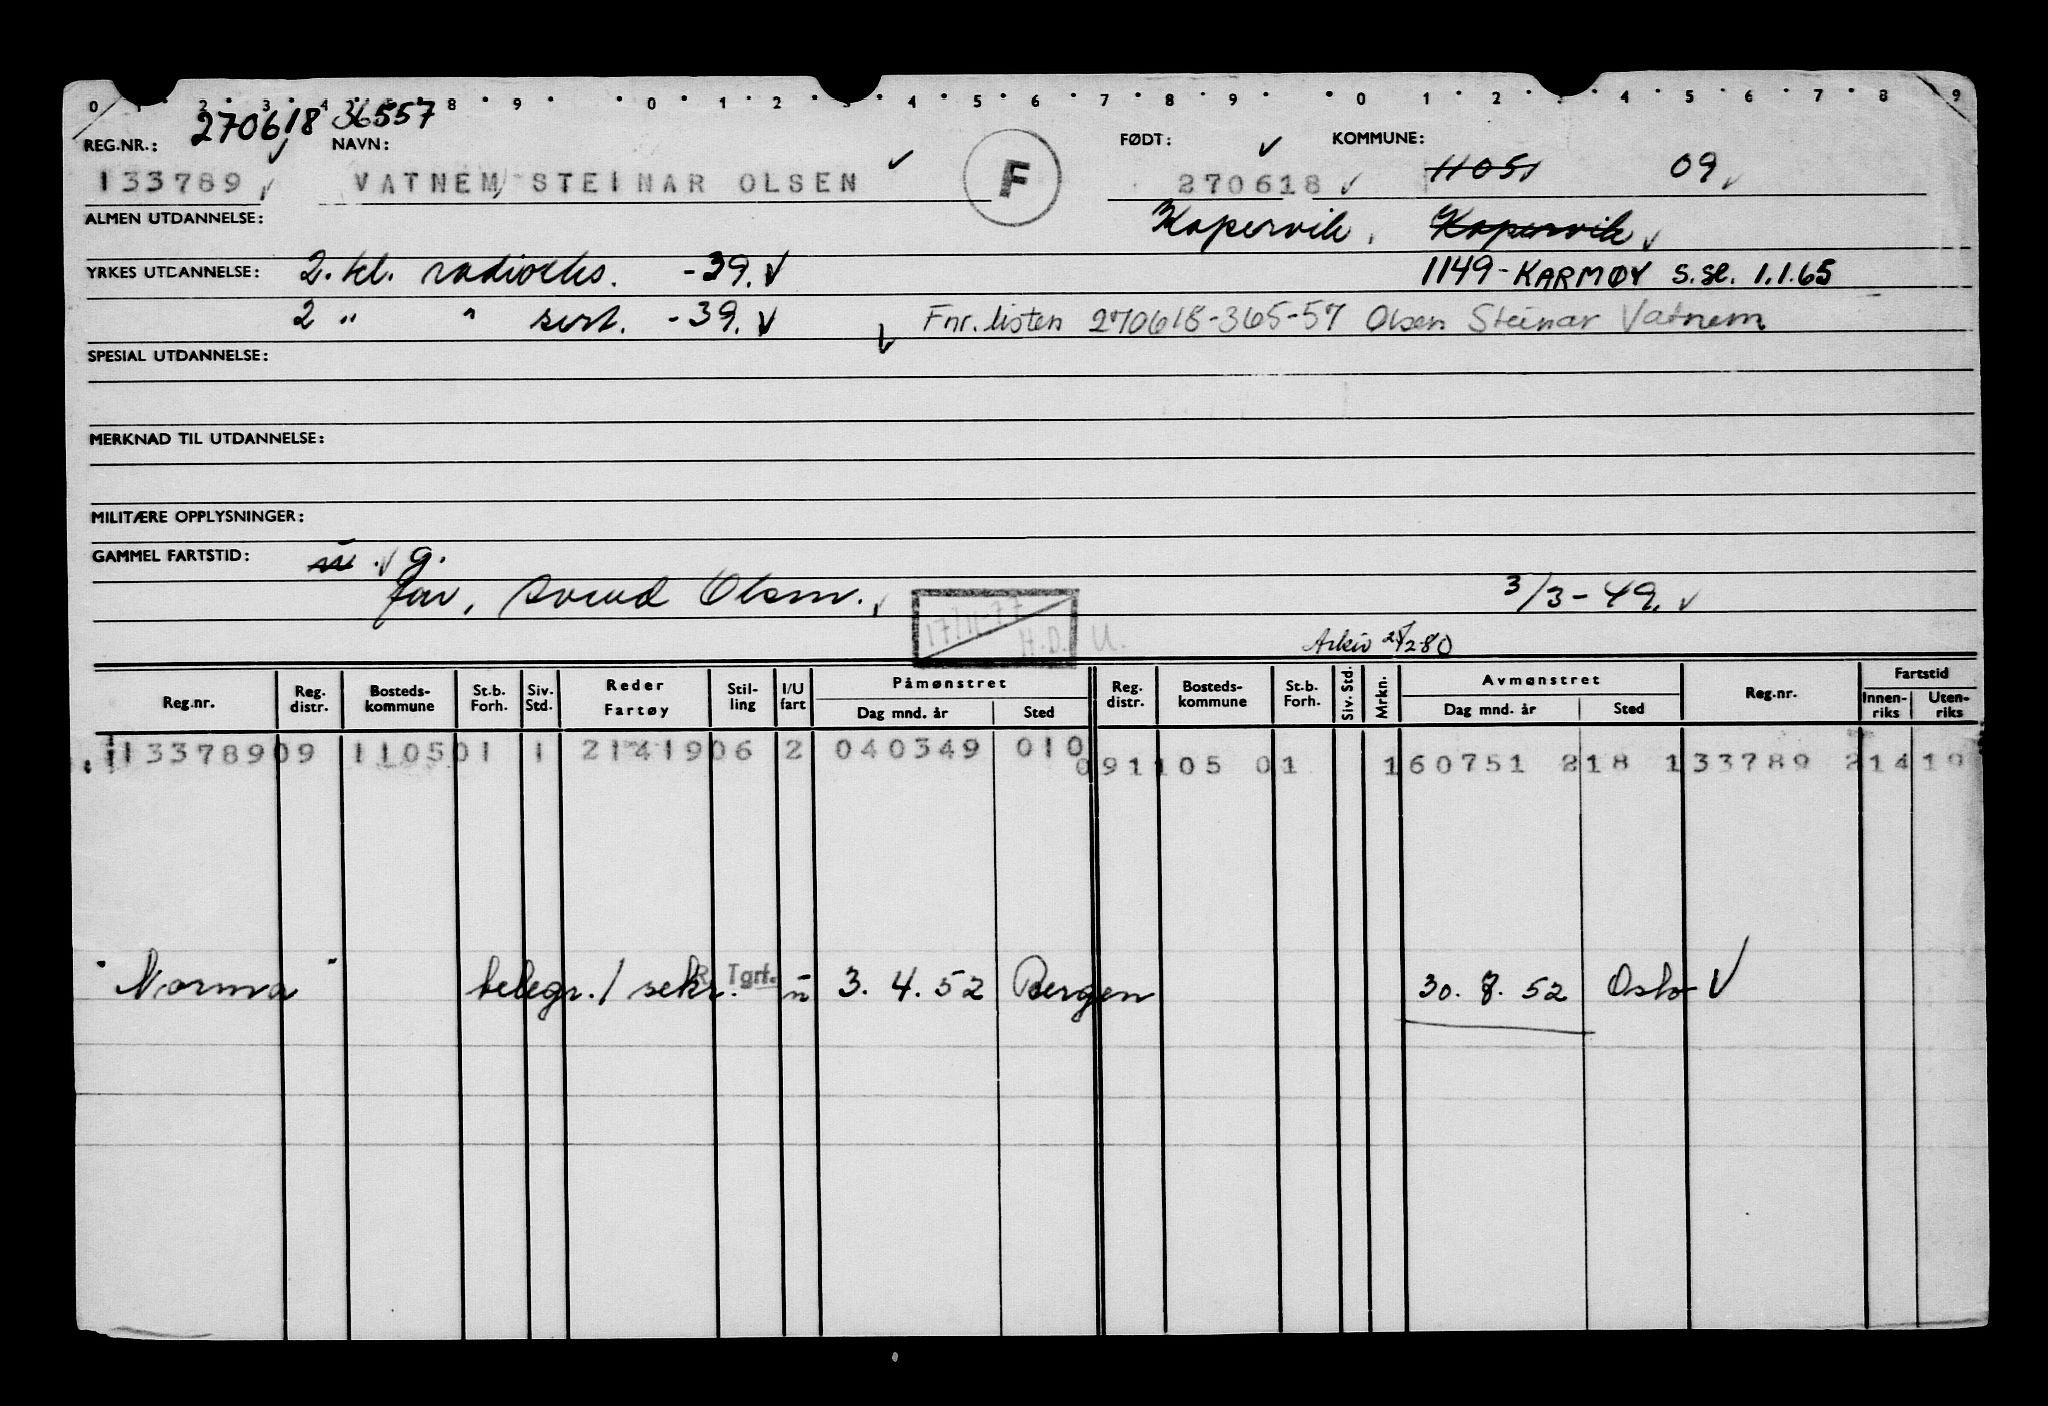 0 1 2 3 4 8 9 0 1 2 3 4 5 6 7 8 9 0 1 2 4 5 6 7 8 9
270618 36557
REG.NR.: NAVN: FØDT: KOMMUNE:
133789 VATNEM, STEINAR OLSEN F 270618 11051 09
ALMEN UTDANNELSE: Kopervik, Kopervik
YRKES UTDANNELSE: 2. kl. radioeks. -39. 1149-KARMØY S.Sl. 1.1.65
2 " " sert. -39. Fnr. listen 270618-365-57 Olsen Steinar Vatnem
SPESIAL UTDANNELSE:
MERKNAD TIL UTDANNELSE:
MILITÆRE OPPLYSNINGER:
GAMMEL FARTSTID: g.
far, Svend Olsen. 3/3-49.
17/11-77 H.D. U. Arkiv 2/280
Reg.nr. Reg. distr. Bosteds-kommune St.b. Forh. Siv. Std. Reder Fartøy Stil-ling I/U fart Påmønstret Dag mnd. år Sted Reg. distr. Bosteds-kommune St.b. Forh. Siv. Std. Mrkn. Avmønstret Dag mnd. år Sted Reg.nr. Fartstid Innen-riks Uten-riks
133789 09 1105 01 1 21419 06 2 040349 010 09 1105 01 1 60751 218 133789 21419
"Norma" telegr./sekr. R.Tgrf. u 3. 4. 52 Bergen 30. 8. 52 Oslo